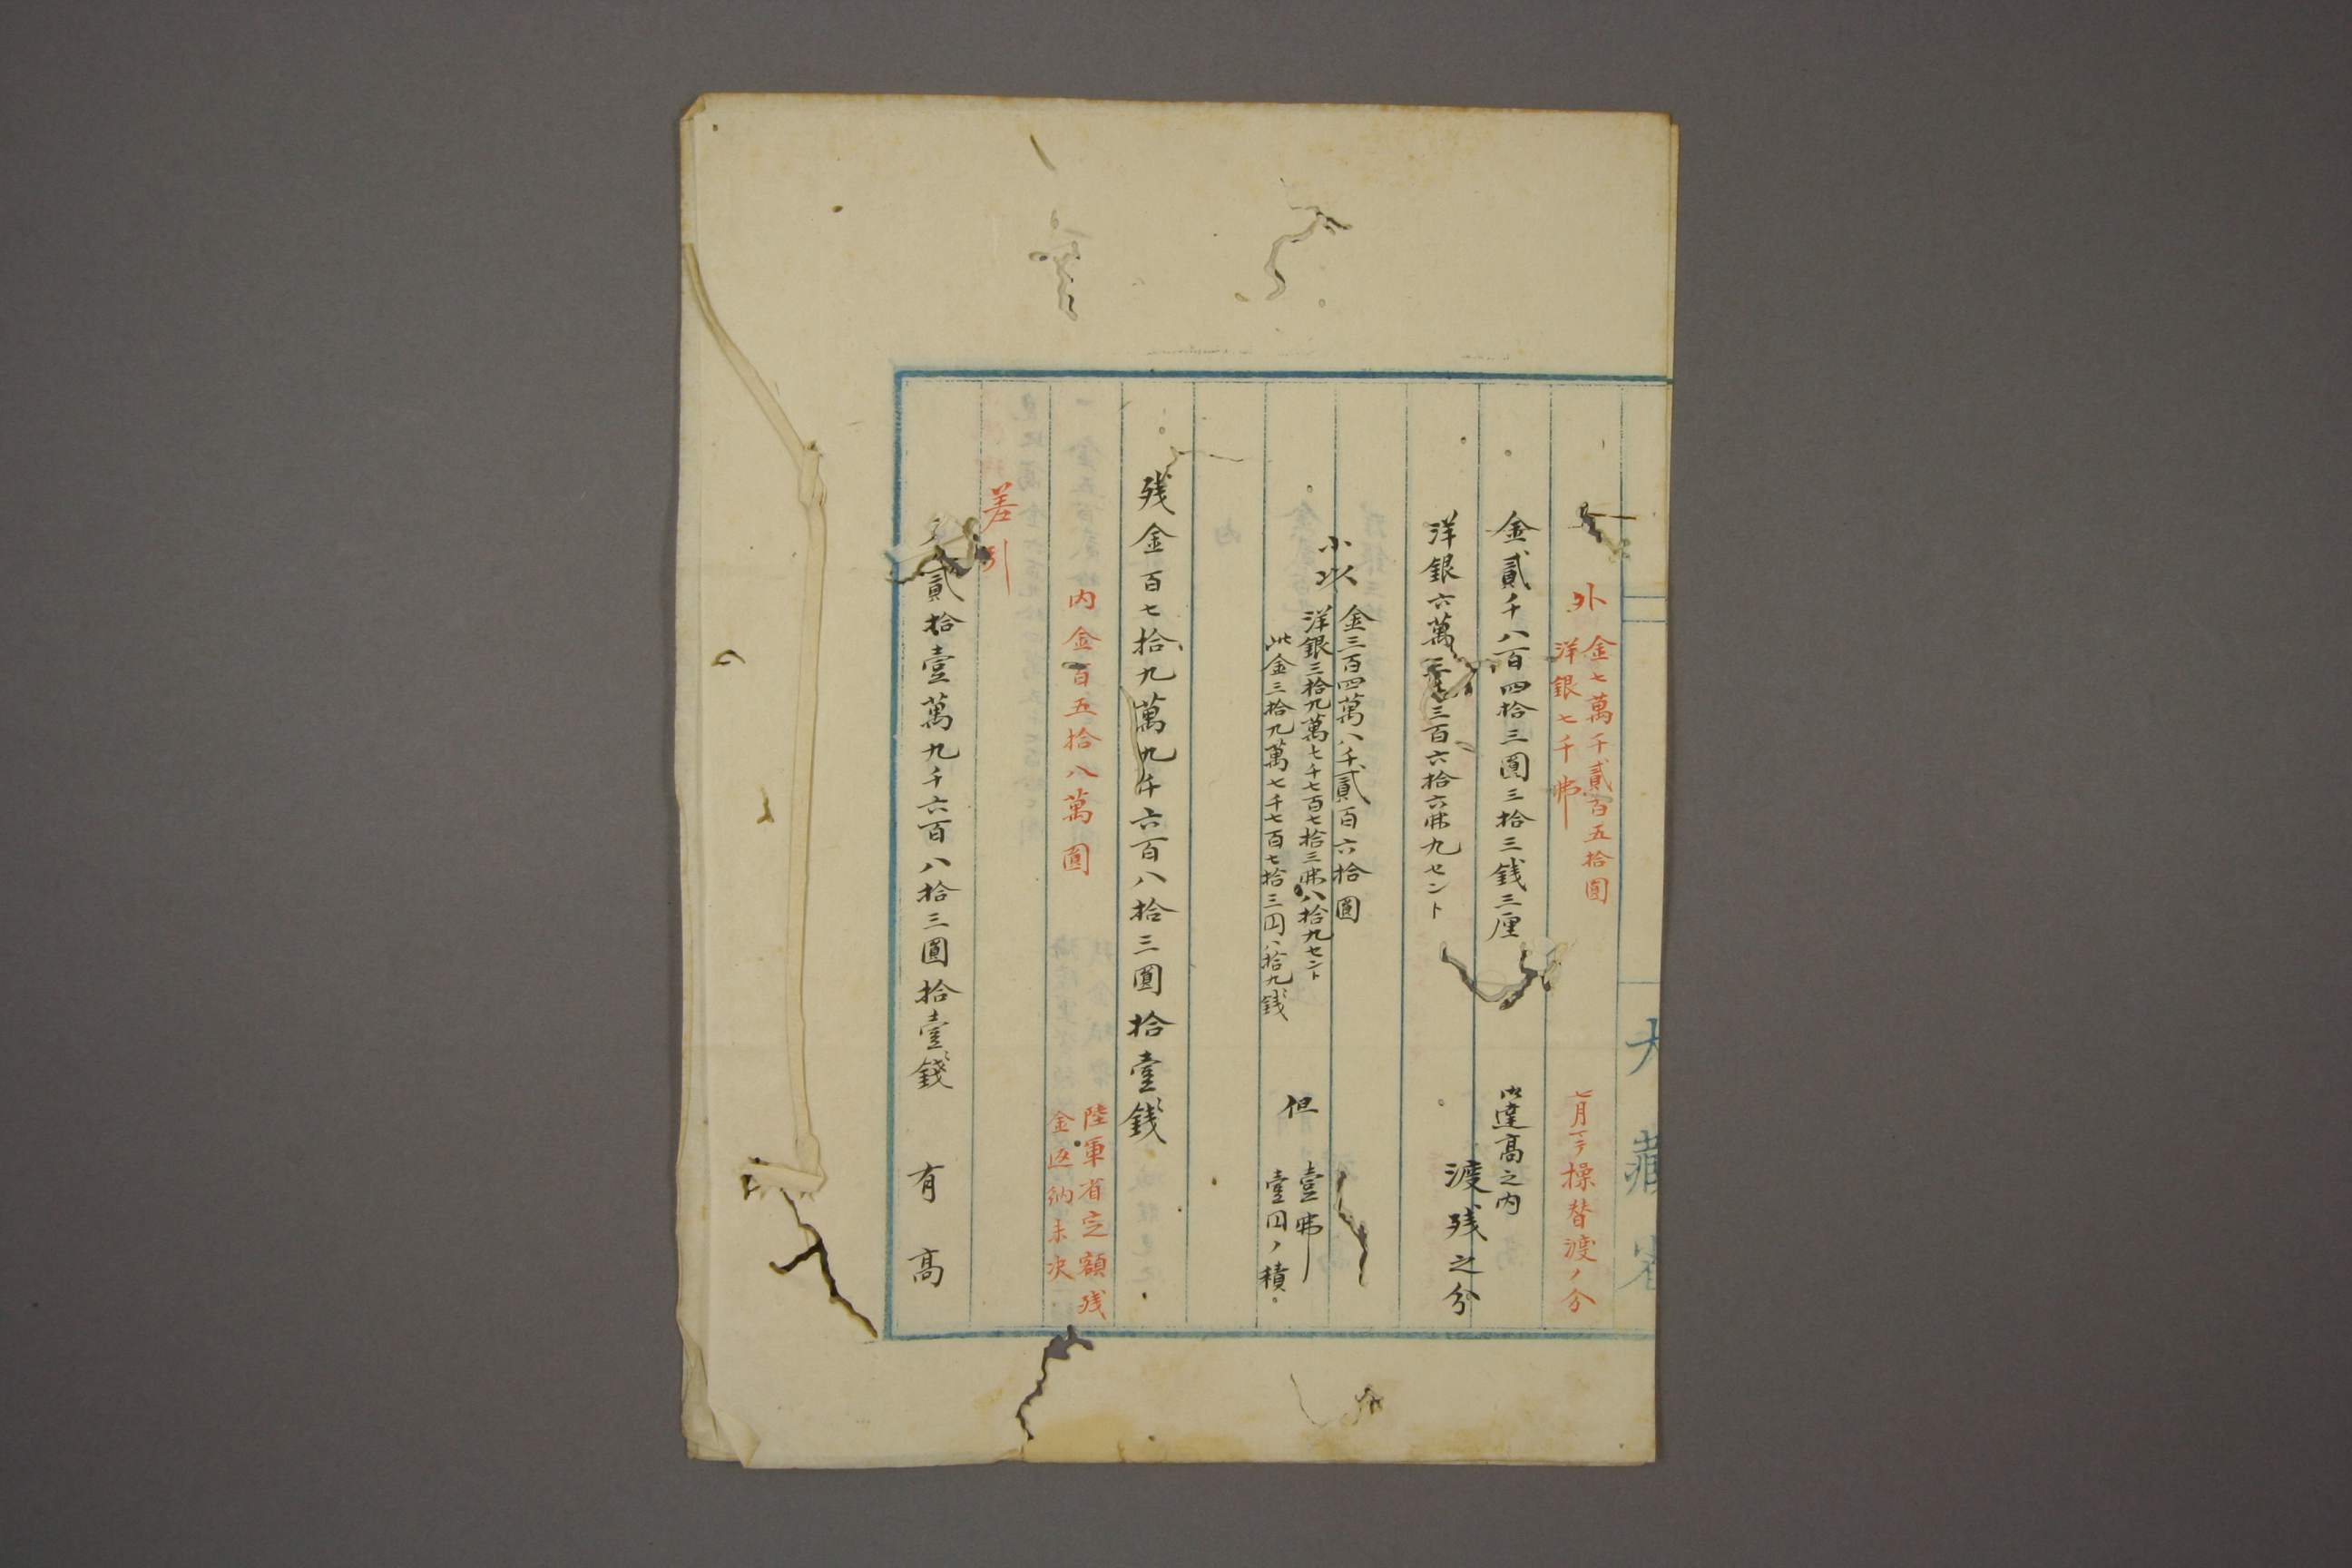 大藏省
外
金七萬千貳百五拾圓
洋銀七千弗
七月丁テ操替渡ノ分
金貳千八百四拾三圓三拾三銭三厘
御達高之内
洋銀六萬三百六拾六弗九セント
渡残之分
小以
金三百四萬八千貳百六拾圓
洋銀三拾九萬七千七百七拾三弗八拾九セント
此金三拾九萬七千七百七拾三円八拾九銭
但
壹弗
壹円ノ積。
残金百七拾九萬九千六百八拾三圓拾壹銭
内金百五拾八萬圓
陸軍省定額残
金返納未決
差引
貳拾壹萬九千六百八拾三圓拾壹錢
有高